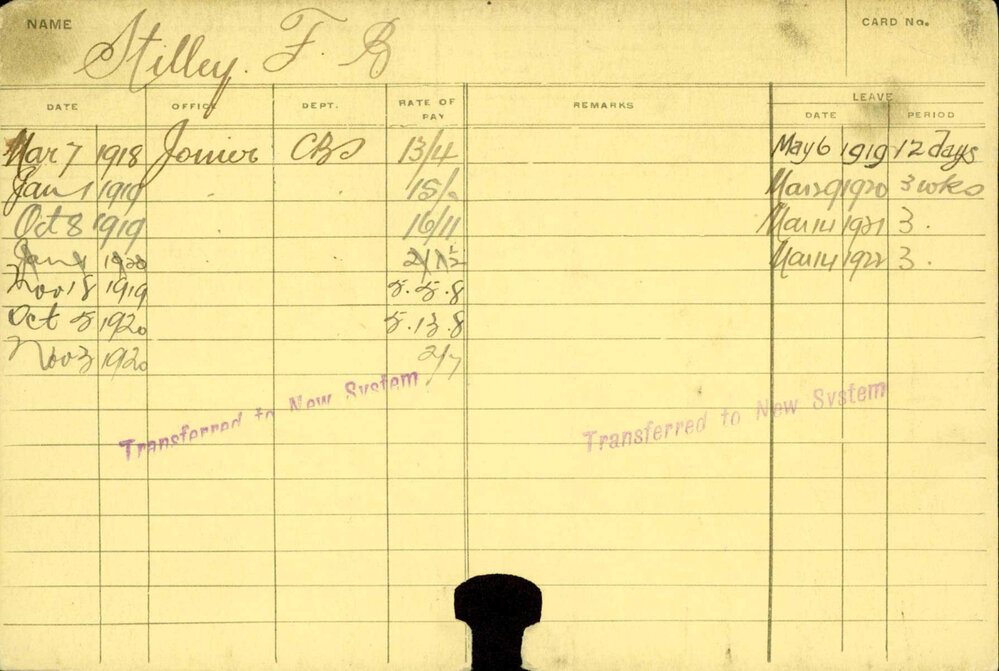 NAME Stilley. F. B CARD No.
DATE OFFICE DEPT. RATE OF PAY REMARKS LEAVE
DATE PERIOD
Mar 7 1918 Joiner CBS 13/4 May 6 1919 12 days
Jan 1 1919 " " 15/- Mar 29 1920 3 wks
Oct 8 1919 16/11 Mar 14 1921 3 "
Jan 1 1920 2/1½ Mar 14 1922 3 "
Nov 18 1919 5.5.8
Oct 5 1920 5.13.8
Nov 3 1920 2/7
Transferred to New System
Transferred to New System